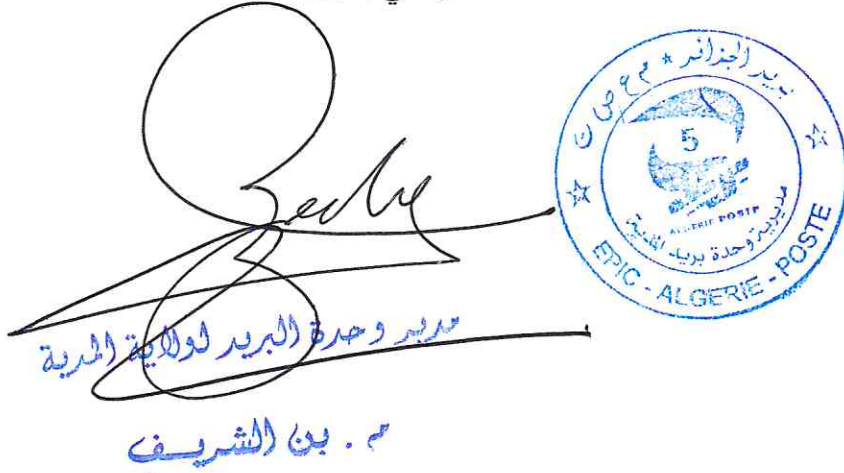 بريد الجزائر * م ع ص ت
5
ALGERIE POSTE
مديرية وحدة بريد المدية
EPIC - ALGERIE - POSTE
مدير وحدة البريد لولاية المدية
م . بن الشريف